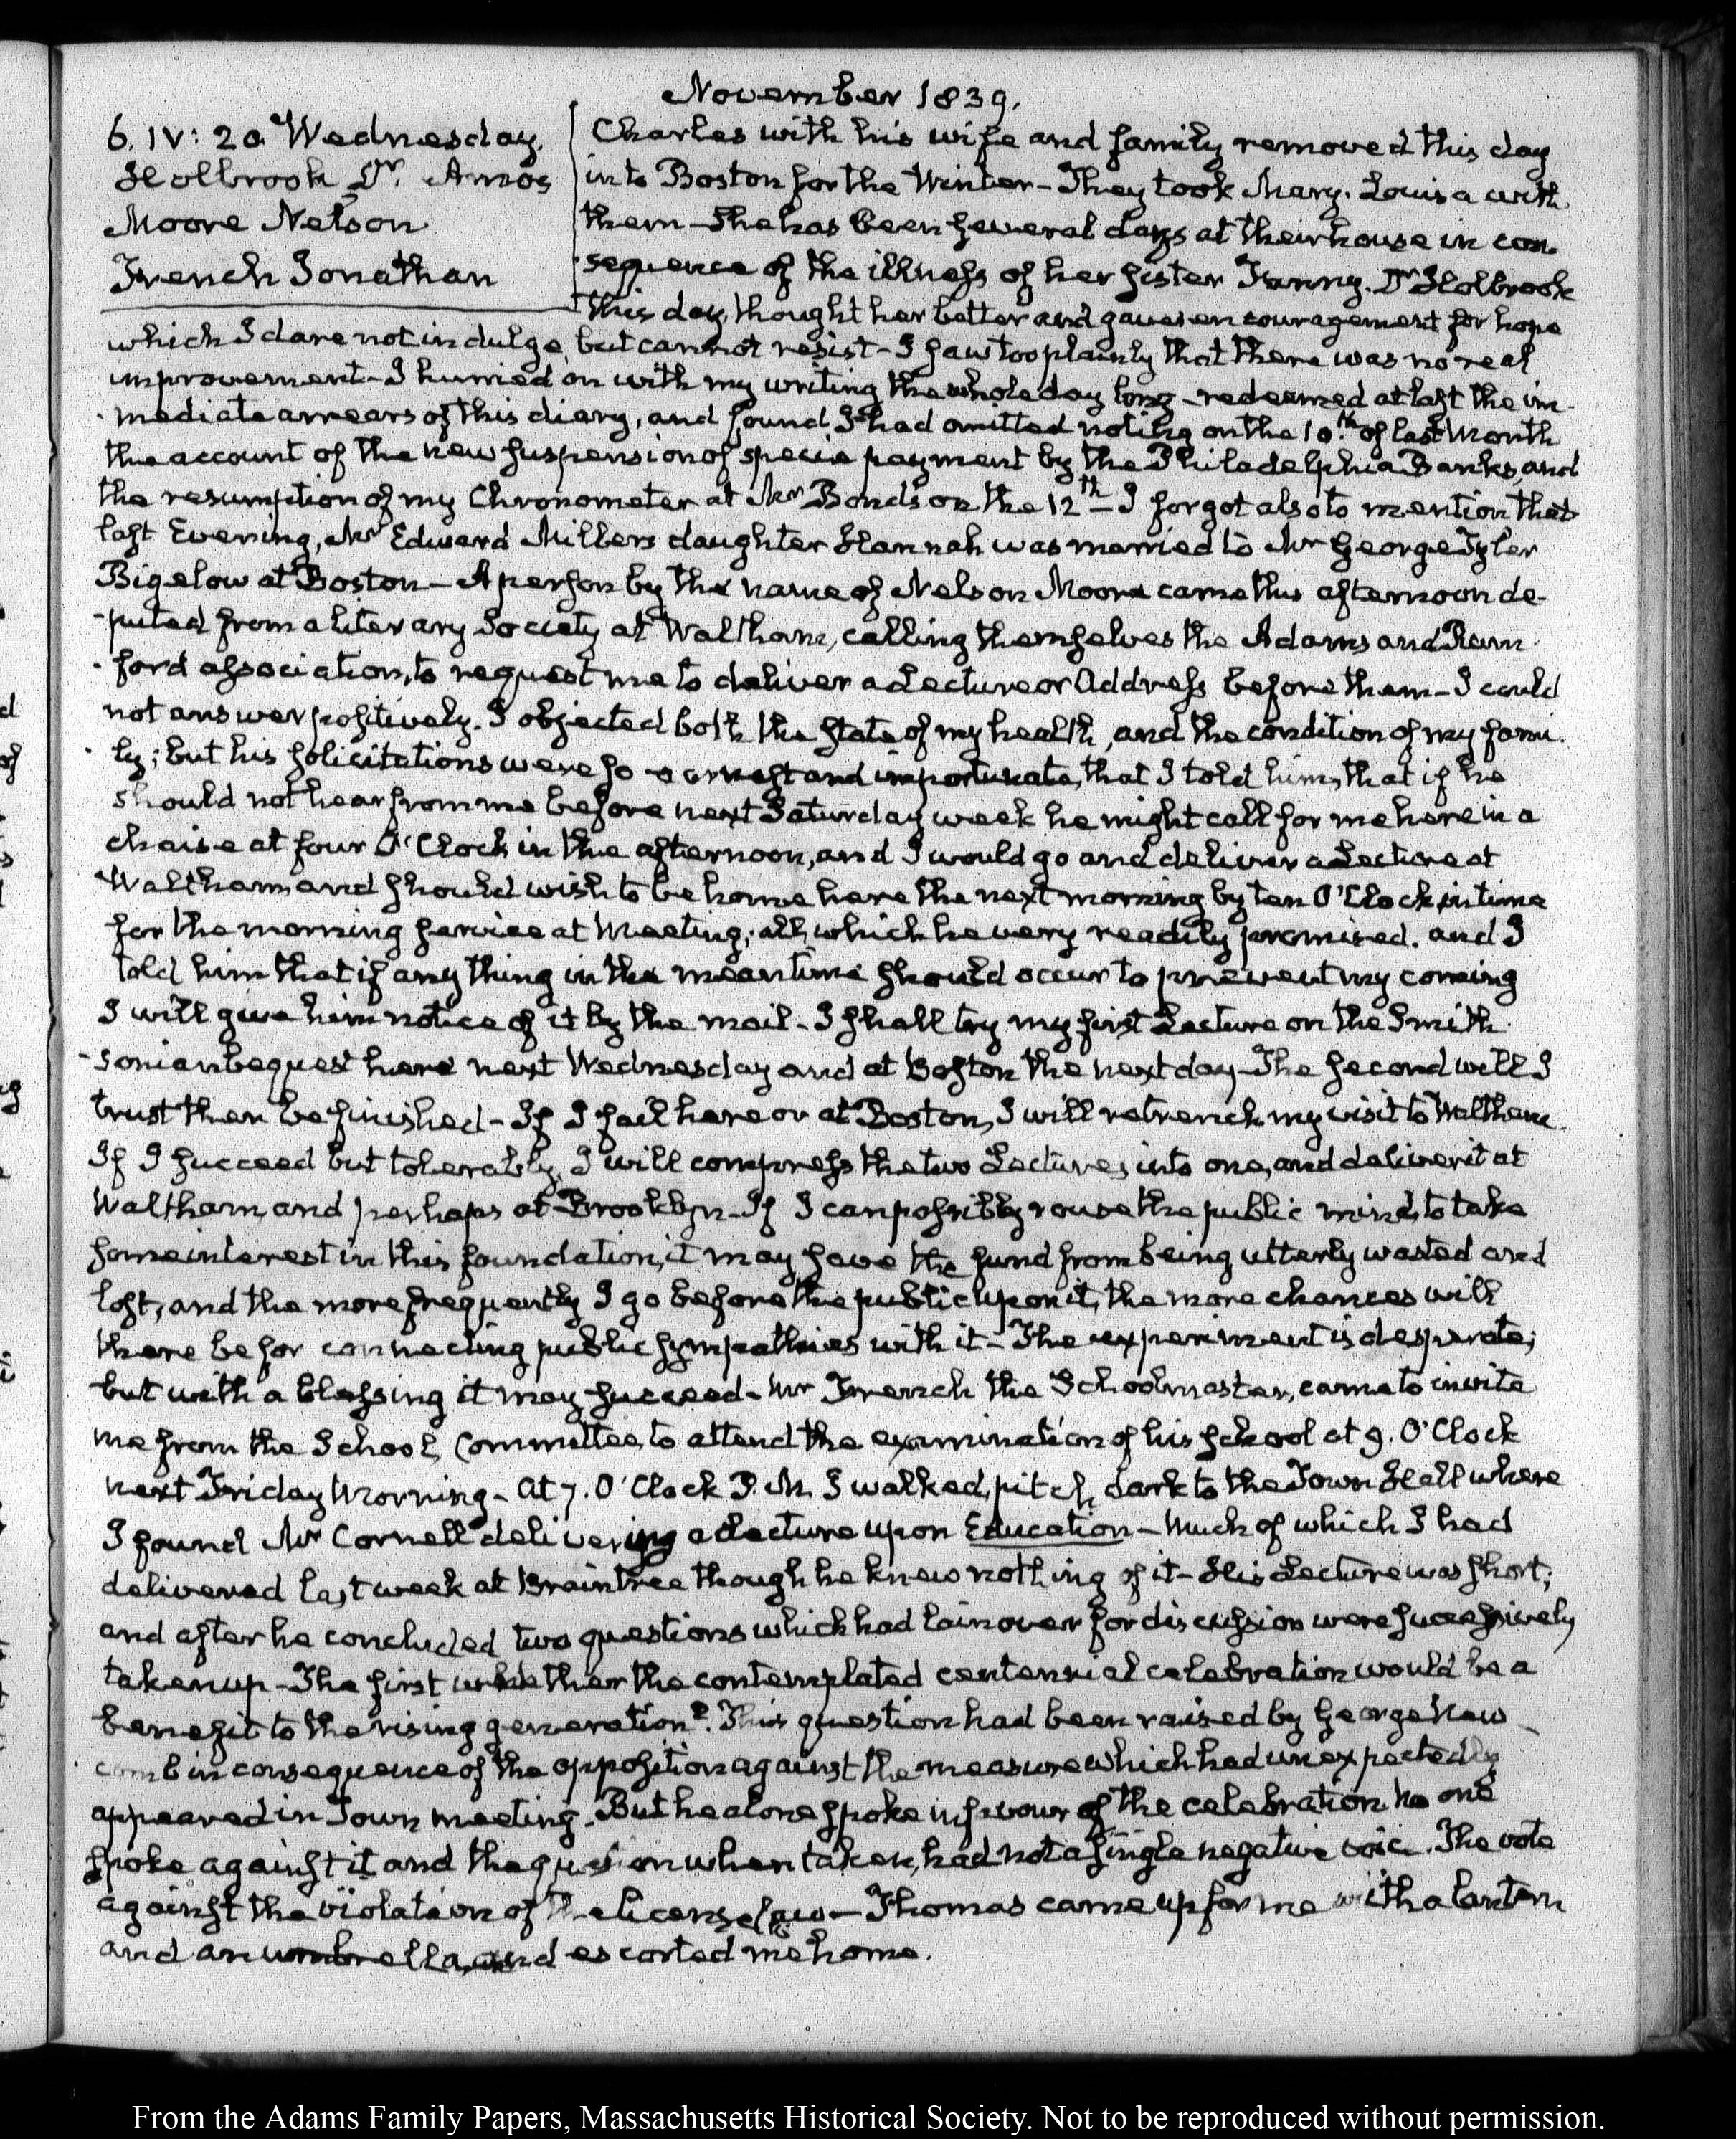 November 1839.
6. IV: 20 Wednesday.
Holbrook Dr. Amos
Moore Nelson
French Jonathan
Charles with his wife and family removed this day
into Boston for the Winter - They took Mary-Louisa with
them - She has been several days at their house in con-
sequence of the illness of her sister Fanny. Dr Holbrook
this day, thought her better and gave us encouragement for hope
which I dare not indulge, but cannot resist - I saw too plainly that there was no real
improvement - I hurried on with my writing the whole day long - redeemed at last the im-
mediate arrears of this diary, and found I had omitted noting on the 10th of last Month
the account of the new suspension of specie payment by the Philadelphia Banks, and
the resumption of my Chronometer at Mr Bond's on the 12th - I forgot also to mention that
last Evening, Mr Edward Miller's daughter Hannah was married to Mr George Tyler
Bigelow at Boston - A person by the name of Nelson Moore came this afternoon de-
-puted from a literary Society at Waltham, calling themselves the Adams and Rum-
-ford association, to request me to deliver a Lecture or Address before them - I could
not answer positively. I objected both the state of my health, and the condition of my fami-
ly; but his solicitations were so earnest and importunate, that I told him, that if he
should not hear from me before next Saturday week he might call for me here in a
chaise at four O'Clock in the afternoon, and I would go and deliver a Lecture at
Waltham and should wish to be home here the next morning by ten O'Clock in time
for the morning service at Meeting; all which he very readily promised. and I
told him that if any thing in the mean time should occur to prevent my coming
I will give him notice of it by the mail - I shall try my first Lecture on the Smith-
-sonian bequest here next Wednesday and at Boston the next day - The second will I
trust then be finished - If I fail here or at Boston, I will retrench my visit to Waltham.
If I succeed but tolerably, I will compress the two Lectures into one, and deliver it at
Waltham, and perhaps at Brooklyn - If I can possibly rouse the public mind to take
some interest in this foundation, it may save the fund from being utterly wasted and
lost, and the more frequently I go before the public upon it, the more chances will
there be for connecting public sympathies with it - The experiment is desperate;
but with a blessing it may succeed - Mr French the Schoolmaster, came to invite
me from the School Committee, to attend the examination of his school at 9. O'Clock
next Friday Morning - At 7. O'Clock P.M. I walked, pitch dark to the Town Hall where
I found Mr Cornell delivering a Lecture upon Education - Much of which I had
delivered last week at Braintree though he knew nothing of it - His Lecture was short;
and after he concluded two questions which had lain over for discussion were successively
taken up - The first whether the contemplated centennial celebration would be a
benefit to the rising generation? This question had been raised by George New-
comb in consequence of the opposition against the measure which had unexpectedly
appeared in Town meeting. But he alone spoke in favour of the celebration no one
spoke against it and the question when taken, had not a single negative voice. The vote
against the violation of the license law - Thomas came up for me with a lantern
and an umbrella, and escorted me home.
From the Adams Family Papers, Massachusetts Historical Society. Not to be reproduced without permission.